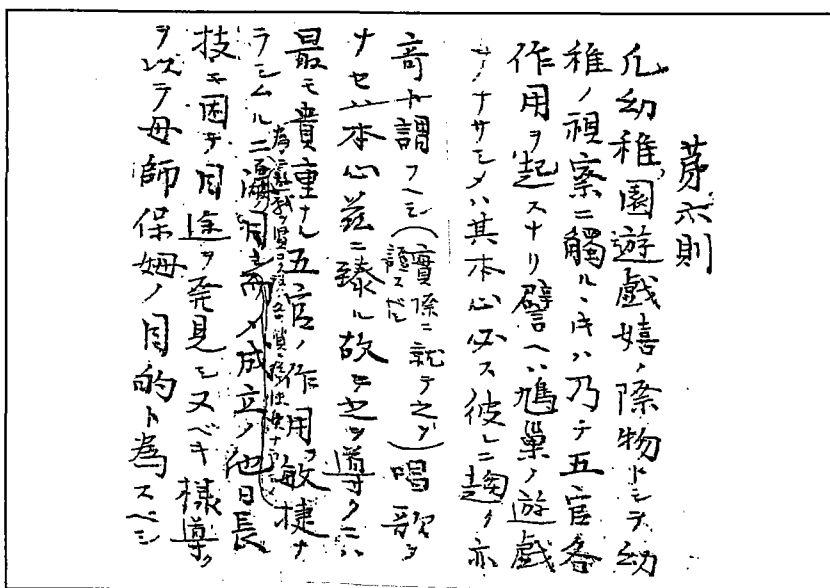 第六則
凡幼稚園遊戯嬉ノ際物トシテ幼
稚ノ視察ニ觸ルヽ时ハ乃チ五官各
作用ヲ起スナリ譬ヘハ鳩巢ノ遊戯
ヲナサシメハ其本心必ス彼レニ趣ク亦
奇ト謂フヘシ(實際ニ就テ之ヲ)唱歌ヲ
證スベシ
ナセハ本心茲ニ臻ル故ニ之ヲ導クニハ
最モ貴重ナル五官ノ作用ヲ敏捷ナ
為ニ遊戯ヲ
ラシムルニ 成立ノ他日長
技ニ因テ目途ヲ発見シ又ベキ様導ク
ヲ以テ母師保姆ノ目的ト為スベシ